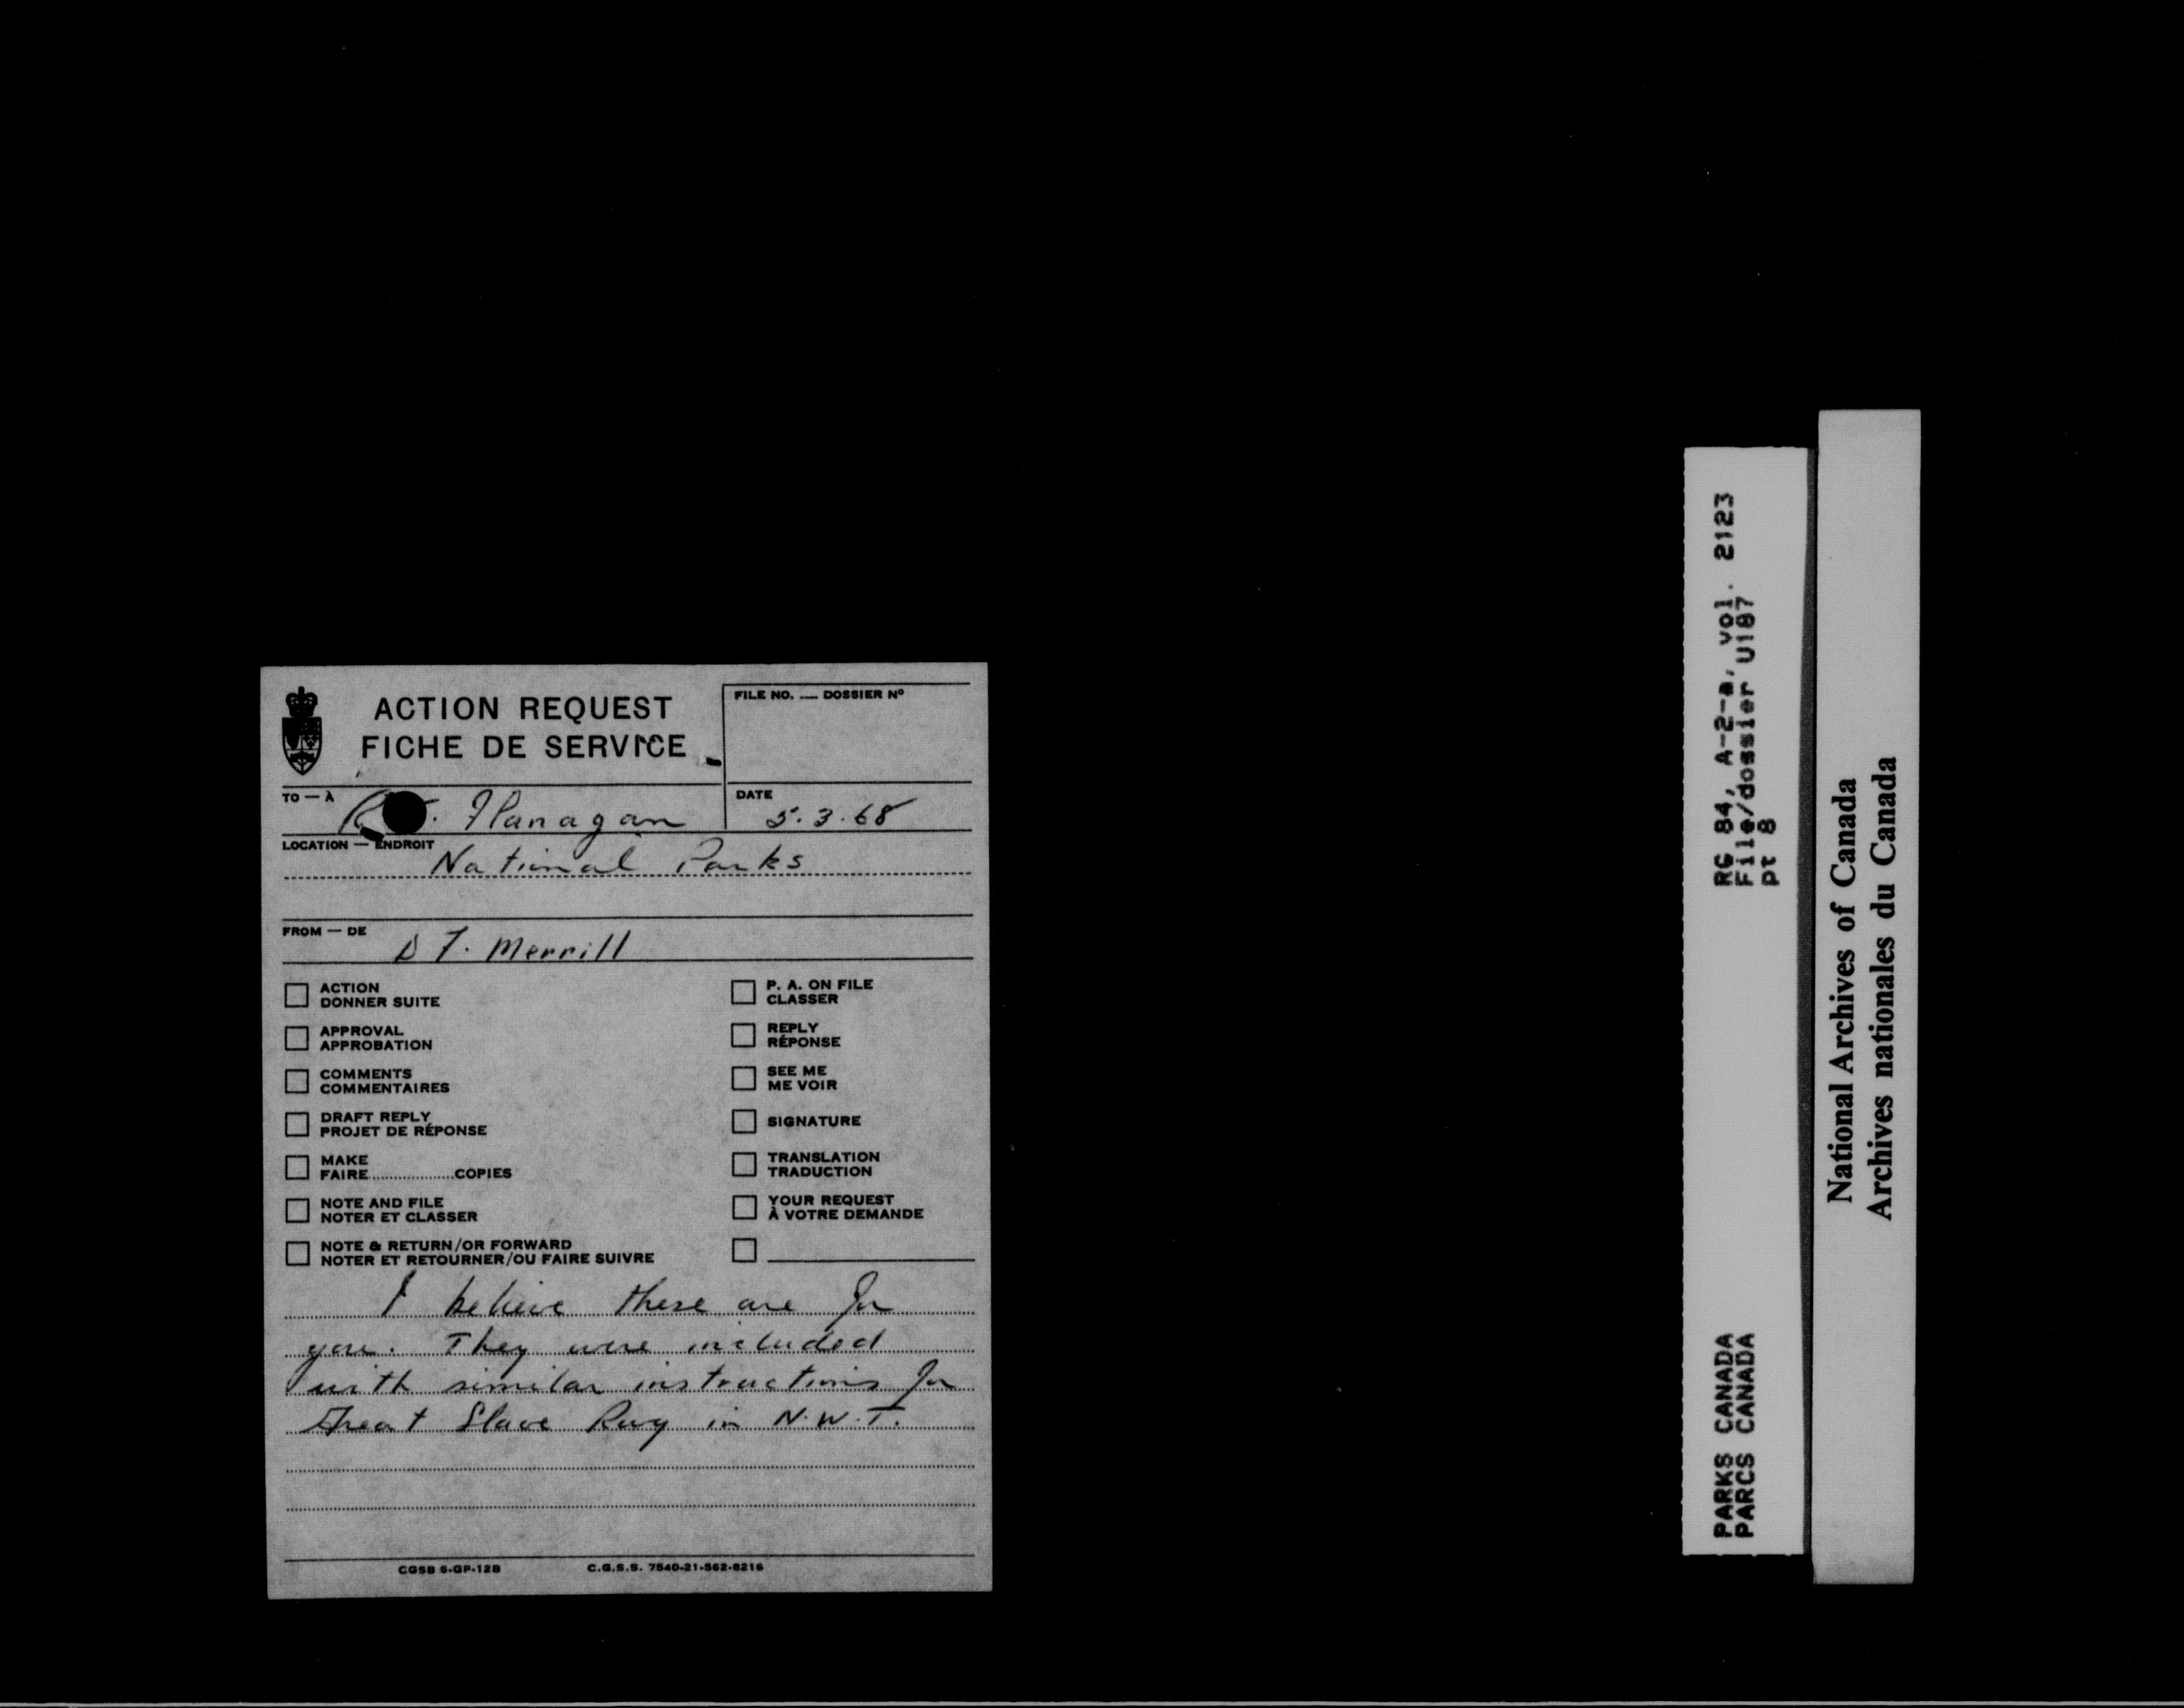 ACTION REQUEST
FICHE DE SERVICE
FILE NO. — DOSSIER Nº
TO — À R. Flanagan
DATE 5.3.68
LOCATION — ENDROIT
National Parks
FROM — DE D F. Merrill
ACTION
DONNER SUITE
APPROVAL
APPROBATION
COMMENTS
COMMENTAIRES
DRAFT REPLY
PROJET DE RÉPONSE
MAKE
FAIRE..................COPIES
NOTE AND FILE
NOTER ET CLASSER
NOTE & RETURN/OR FORWARD
NOTER ET RETOURNER/OU FAIRE SUIVRE
P. A. ON FILE
CLASSER
REPLY
RÉPONSE
SEE ME
ME VOIR
SIGNATURE
TRANSLATION
TRADUCTION
YOUR REQUEST
À VOTRE DEMANDE
I believe these are for
you. They were included
with similar instructions for
Great Slave Rwy in N.W.T.
CGSB 6-GP-12B C.G.S.S. 7540-21-562-6216
RG 84, A-2-a, vol. 2123
File/dossier U187
pt 8
PARKS CANADA
PARCS CANADA
National Archives of Canada
Archives nationales du Canada